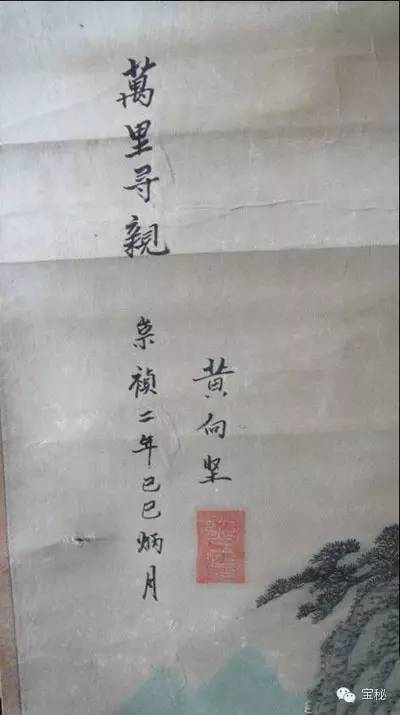 萬里寻親
崇禎二年己巳炳月
黄向坚
宝秘